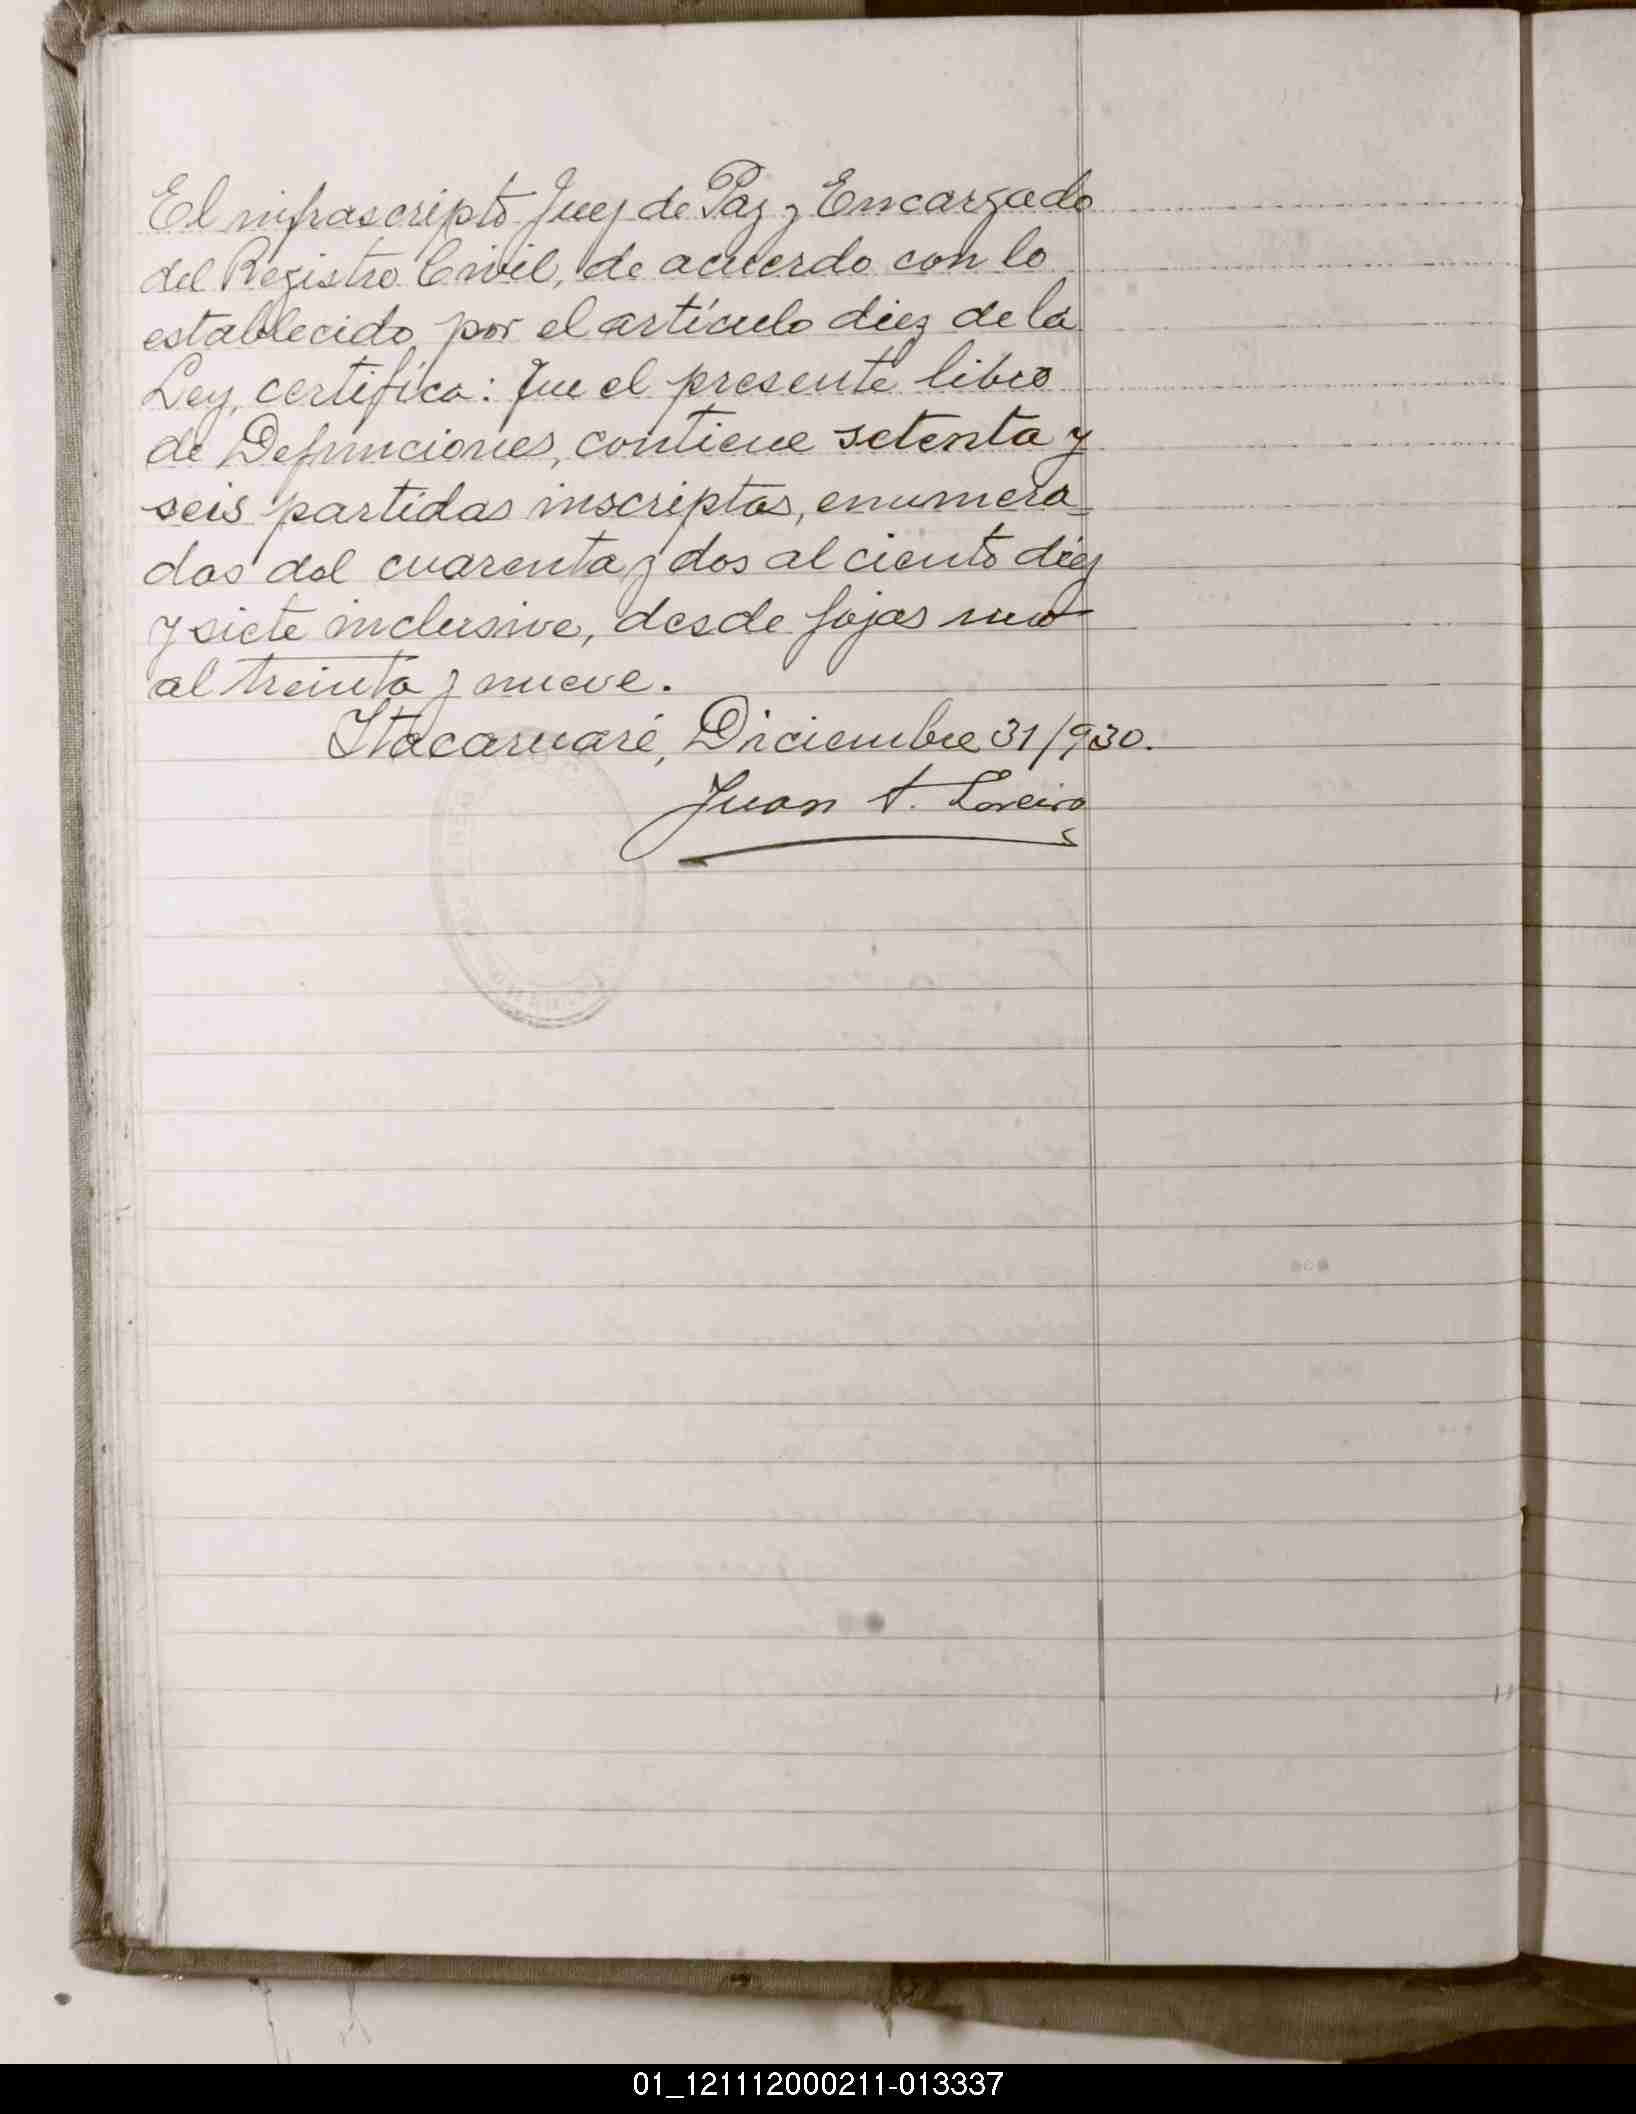 El infrascripto Juez de Paz y Encargado
del Registro Civil, de acuerdo con lo
establecido por el artículo diez de la
Ley, certifica: Que el presente libro
de Defunciones, contiene setenta y
seis partidas inscriptas, enumera=
das del cuarenta y dos al ciento diez
y siete inclusive, desde fojas uno
al treinta y nueve.
Itacaruaré, Diciembre 31/930.
Juan A. Loreiro
01_121112000211-013337